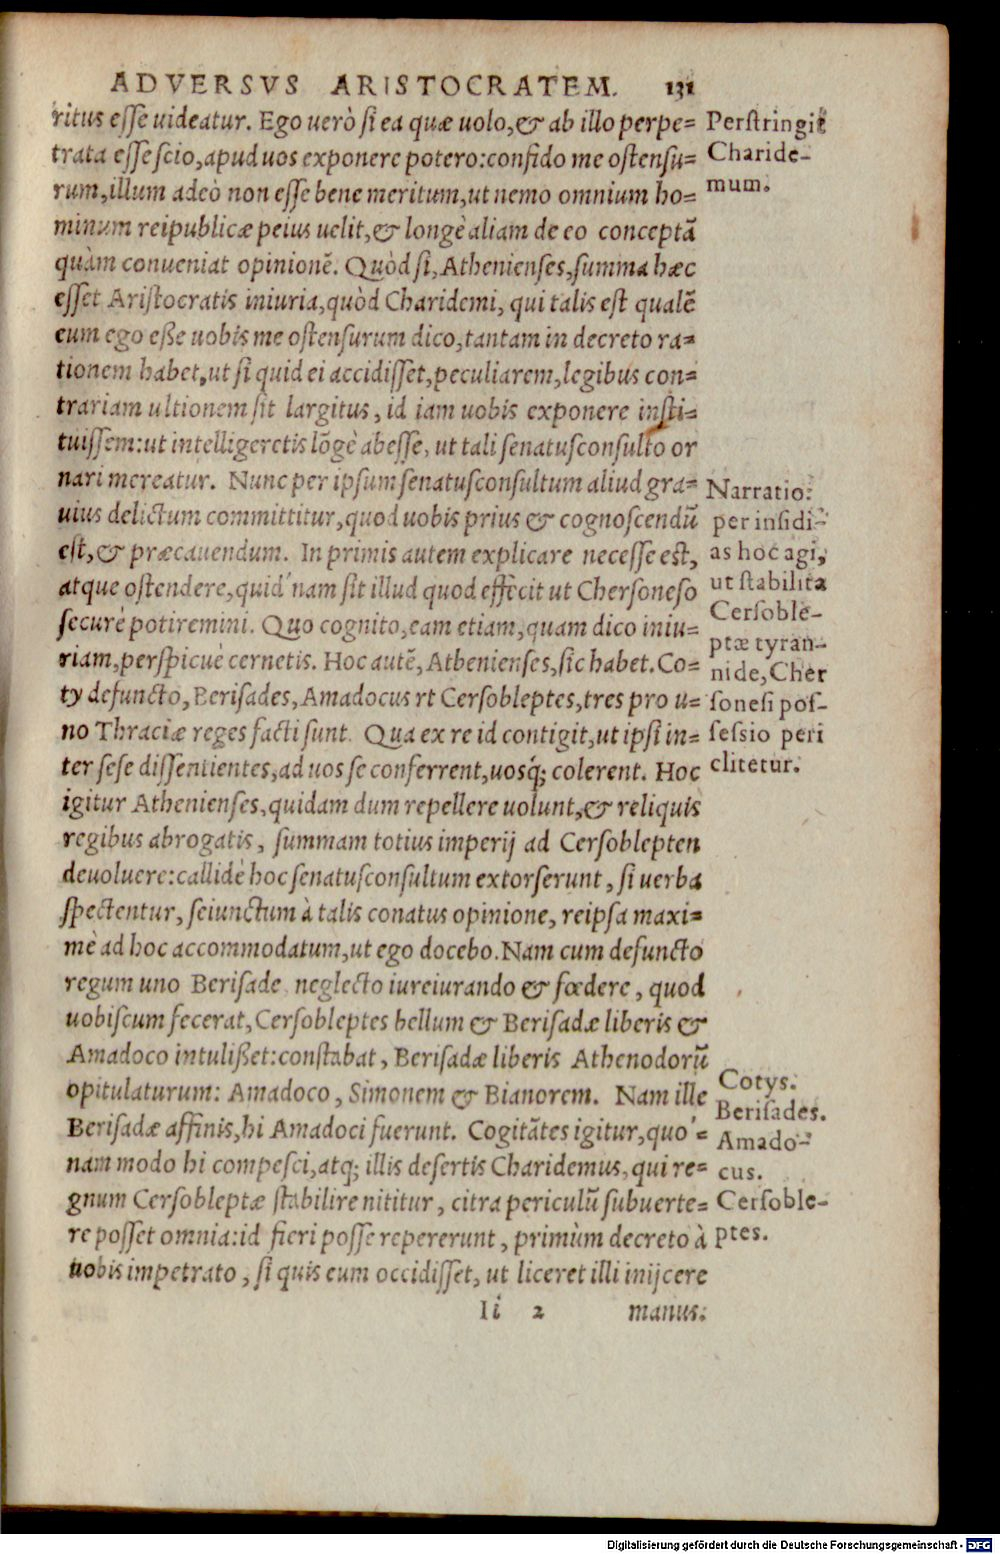 ADVERSVS ARISTOCRATEM. 131
ritus esse uideatur. Ego uerò si ea quæ uolo, & ab illo perpe=
trata esse scio, apud uos exponere potero: confido me ostensu=
rum, illum adeò non esse bene meritum, ut nemo omnium ho=
minum reipublicæ peius uelit, & longè aliam de eo conceptã
quàm conueniat opinionẽ. Quòd si, Athenienses, summa hæc
esset Aristocratis iniuria, quòd Charidemi, qui talis est qualẽ
eum ego eße uobis me ostensurum dico, tantam in decreto ra=
tionem habet, ut si quid ei accidisset, peculiarem, legibus con=
trariam ultionem sit largitus, id iam uobis exponere insti=
tuissem: ut intelligeretis lõgè abesse, ut tali senatusconsulto or
nari mereatur. Nunc per ipsum senatusconsultum aliud gra=
uius delictum committitur, quod uobis prius & cognoscendũ
est, & præcauendum. In primis autem explicare necesse est,
atque ostendere, quid'nam sit illud quod effecit ut Chersoneso
securè potiremini. Quo cognito, eam etiam, quam dico iniu=
riam, perspicuè cernetis. Hoc autẽ, Athenienses, sic habet. Co=
ty defuncto, Berisades, Amadocus rt Cersobleptes, tres pro u=
no Thraciæ reges facti sunt. Qua ex re id contigit, ut ipsi in=
ter sese dissentientes, ad uos se conferrent, uosq; colerent. Hoc
igitur Athenienses, quidam dum repellere uolunt, & reliquis
regibus abrogatis, summam totius imperij ad Cersoblepten
deuoluere: callidè hoc senatusconsultum extorserunt, si uerba
spectentur, seiunctum à talis conatus opinione, reipsa maxi=
mè ad hoc accommodatum, ut ego docebo. Nam cum defuncto
regum uno Berisade neglecto iureiurando & fœdere, quod
uobiscum fecerat, Cersobleptes bellum & Berisadæ liberis &
Amadoco intulißet: constabat, Berisadæ liberis Athenodorũ
opitulaturum: Amadoco, Simonem & Bianorem. Nam ille
Berisadæ affinis, hi Amadoci fuerunt. Cogitãtes igitur, quo'=
nam modo hi compesci, atq; illis desertis Charidemus, qui re=
gnum Cersobleptæ stabilire nititur, citra periculũ subuerte=
re posset omnia: id fieri posse repererunt, primùm decreto à
uobis impetrato, si quis eum occidisset, ut liceret illi inijcere
Ii 2 manus:
Perstringit
Charide-
mum.
Narratio:
per insidi-
as hoc agi,
ut stabilita
Cersoble-
ptæ tyran-
nide, Cher
sonesi pos-
sessio peri
clitetur.
Cotys.
Berisades.
Amado-
cus.
Cersoble-
ptes.
Digitalisierung gefördert durch die Deutsche Forschungsgemeinschaft - DFG